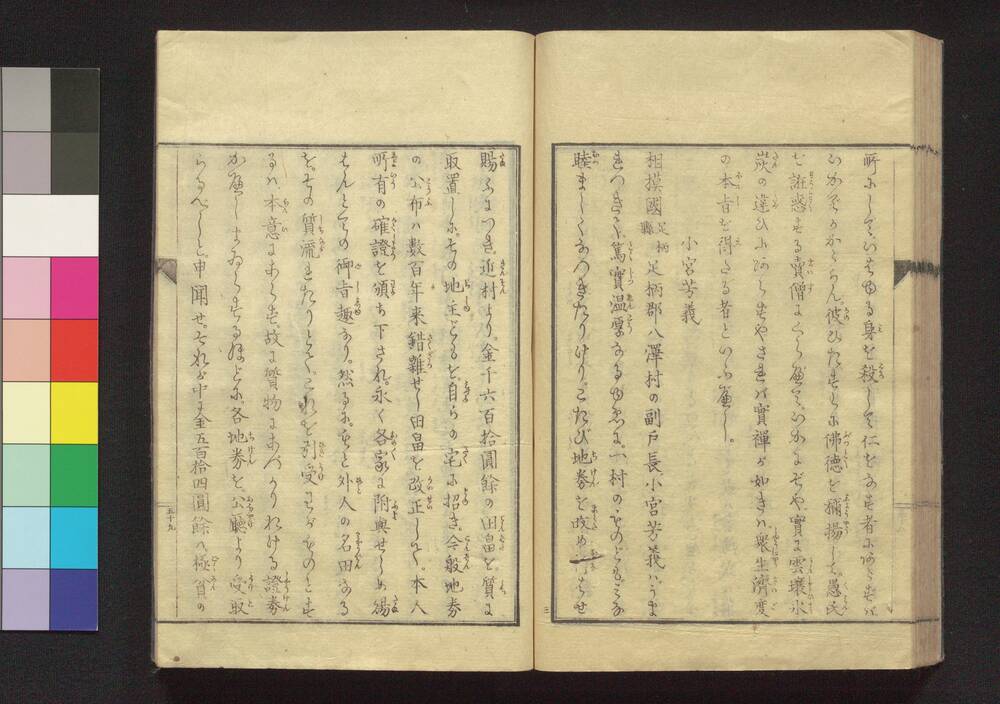 所にしていはゆる身を殺して仁をなす者にあらずは
いかでかからん彼ひたすらに佛徳を称揚して愚民
を誑惑する賣僧にくらべていかにぞや實に雲壌氷
炭の違ひにあらずやされば實禅が如きは衆生済度
の本旨を得たる者といふべし。
小宮芳義
相摸國足柄縣足柄郡八澤村の副戸長小宮芳義はうま
れつき篤實温厚なるゆゑに一村のものどもみな
睦ましくなつきたりけり。こたび地券を改め
賜ふにつき。近村より。金千六百拾圓餘の田畠を。質に
取置しに。その地主どもを自らの宅に招き。今般地券
の公布は數百年来錯雜せし田畠を改正して。本人
所有の確證を頒ち下され。永く各家に附與せしめ給
はんとての御旨趣なり。然るにもと外人の名田なる
を。その質流れたりとて。これを引受
るは。本意にあらず。故に質物にあづかりおける證券
かへしまゐらするほどに。各地券を公廳より受取
らるべしと。申聞せ。それが中に金五百拾四圓餘は極貧の
五十九